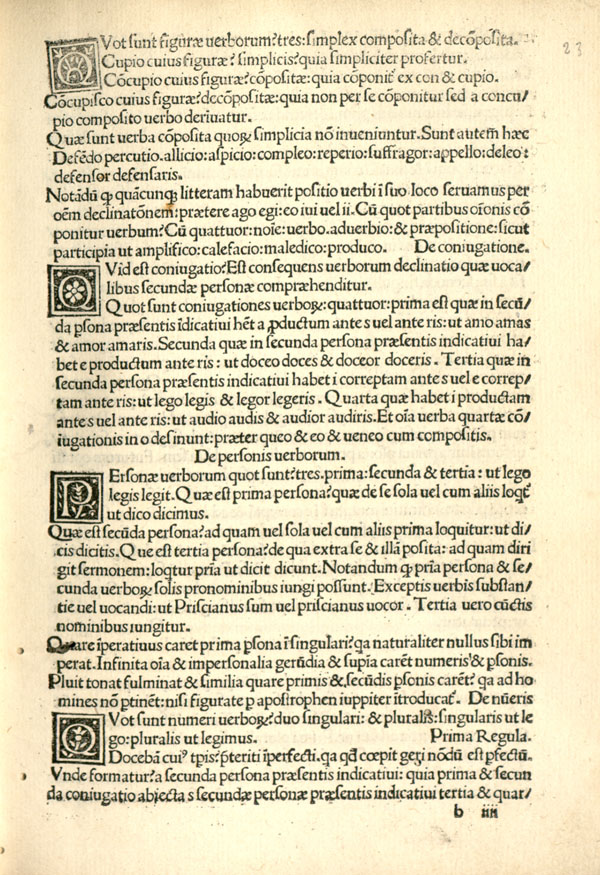 23
QVot sunt figuræ uerborum? tres: simplex composita & decōposita.
Cupio cuius figuræ? simplicis? quia simpliciter profertur.
Cōcupio cuius figuræ? cōpositæ: quia cōponit᷑ ex con & cupio.
Cōcupisco cuius figuræ? decōpositæ: quia non per se cōponitur sed a concu/
pio composito uerbo deriuatur.
Quæ sunt uerba cōposita quoꝝ simplicia nō inueniuntur. Sunt autem hæc
Defēdo percutio. allicio: aspicio: compleo: reperio: suffragor: appello: deleo:
defensor defensaris.
Notādū ꝙ quācunqꝫ litteram habuerit positio uerbi ī suo loco seruamus per
oēm declinatōnem: prætere ago egi: eo iui uel ii. Cū quot partibus oīonis cō
ponitur uerbum? Cū quattuor: noīe: uerbo. aduerbio & præpositione: sicut
participia ut amplifico: calefacio: maledico: produco. De coniugatione.
QVid est coniugatio? Est consequens uerborum declinatio quæ uoca/
libus secundæ personæ compræhenditur.
Quot sunt coniugationes uerboꝝ: quattuor: prima est quæ in secū/
da ꝑsona præsentis īdicatiui hēt a ꝓductum ante s uel ante ris: ut amo amas
& amor amaris. Secunda quæ in secunda persona præsentis indicatiui ha/
bet e productum ante ris: ut doceo doces & doceor doceris. Tertia quæ in
secunda persona præsentis indicatiui habet i correptam ante s uel e correp/
tam ante ris: ut lego legis & legor legeris. Quarta quæ habet i productam
ante s uel ante ris: ut audio audis & audior audiris. Et oīa uerba quartæ cō/
iugationis in o desinunt: præter queo & eo & ueneo cum compositis.
De personis uerborum.
PErsonæ uerborum quot sunt? tres. prima: secunda & tertia: ut lego
legis legit. Quæ est prima persona? quæ de se sola uel cum aliis loqt᷑
ut dico dicimus.
Quæ est secūda persona? ad quam uel sola uel cum aliis prima loquitur: ut di/
cis dicitis. Que est tertia persona? de qua extra se & illā posita: ad quam diri
git sermonem: loqtur pria ut dicit dicunt. Notandum ꝙ pria persona & se/
cunda uerboꝝ solis pronominibus iungi possunt. Exceptis uerbis substan/
tie uel uocandi: ut Priscianus sum uel priscianus uocor. Tertia uero cūctis
nominibus iungitur.
Quare īperatiuus caret prima ꝑsona ī singulari? qa naturaliter nullus sibi im
perat. Infinita oīa & impersonalia gerūdia & supīa carēt numeris & ꝑsonis.
Pluit tonat fulminat & similia quare primis & secūdis ꝑsonis carēt? qa ad ho
mines nō ꝑtinēt: nisi figurate ꝑ apostrophen iuppiter ītroducat᷑. De nūeris
QVot sunt numeri uerboꝝ? duo singulari: & pluralis: singularis ut le
go: pluralis ut legimus. Prima Regula.
Docebā cuiꝰ tpis? ꝑteriti īperfecti. qa qd cœpit geri nōdū est ꝑfectū.
Vnde formatur? a secunda persona præsentis indicatiui: quia prima & secun
da coniugatio abjecta s secundæ personæ præsentis indicatiui tertia & quar/
b iiii